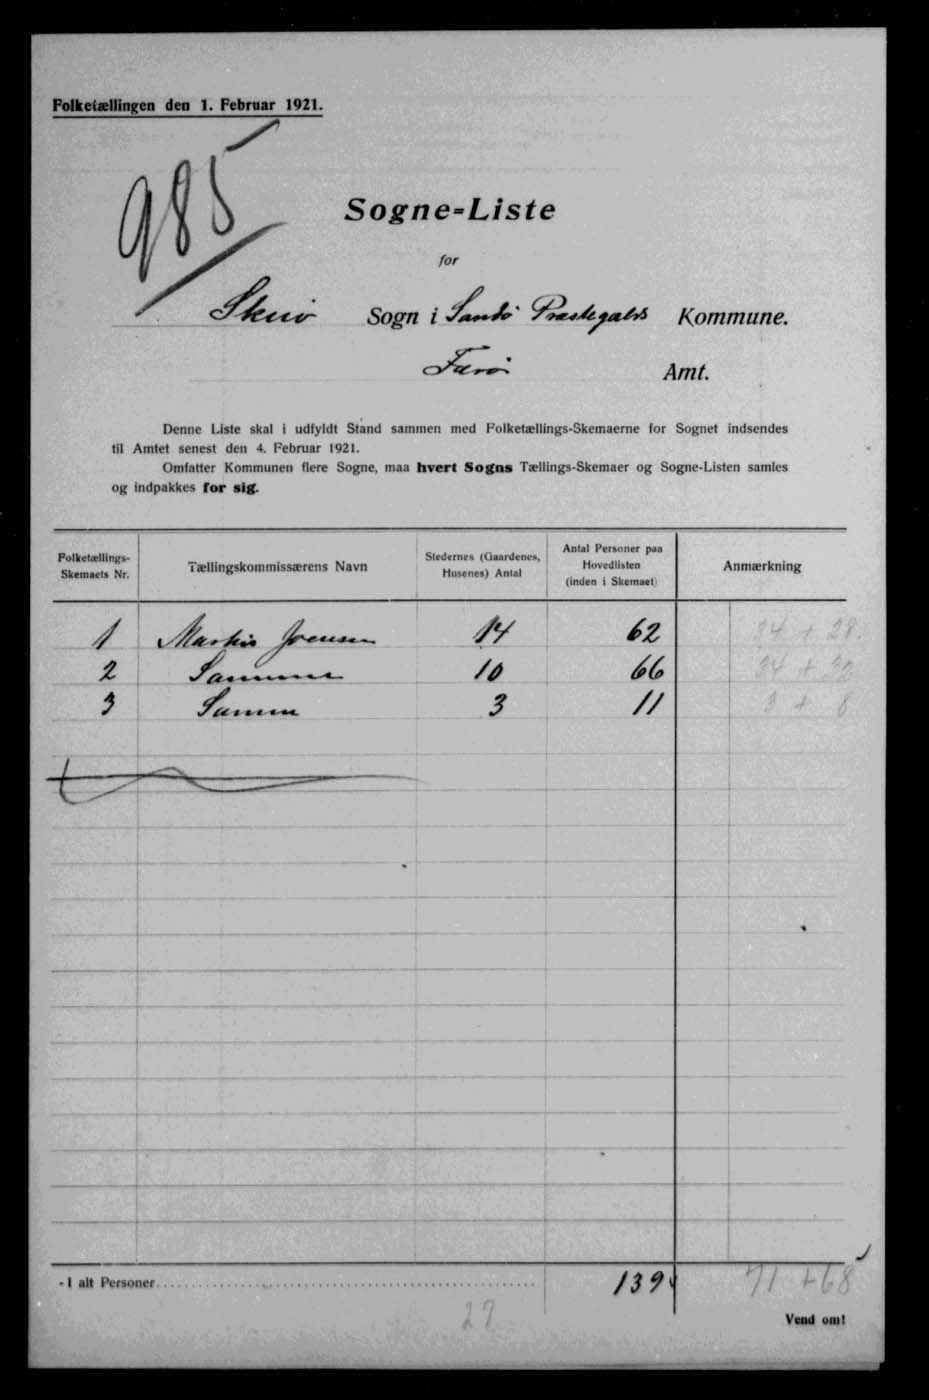 Folketællingen den 1. Februar 1921.
985
Sogne=Liste
for
Skuø Sogn i Sandø Præstegælds Kommune.
Færø Amt.
Denne Liste skal i udfyldt Stand sammen med Folketællings-Skemaerne for Sognet indsendes
til Amtet senest den 4. Februar 1921.
Omfatter Kommunen flere Sogne, maa hvert Sogns Tællings-Skemaer og Sogne-Listen samles
og indpakkes for sig.
Folketællings-
Skemaets Nr.
Tællingskommissærens Navn
Stedernes (Gaardenes,
Husenes) Antal
Antal Personer paa
Hovedlisten
(inden i Skemaet)
Anmærkning
1 Markus Joensen 14 62 34 + 28
2 Samme 10 66 34 + 32
3 Samme 3 11 3 + 8
I alt Personer 139 71 + 68
27
Vend om!